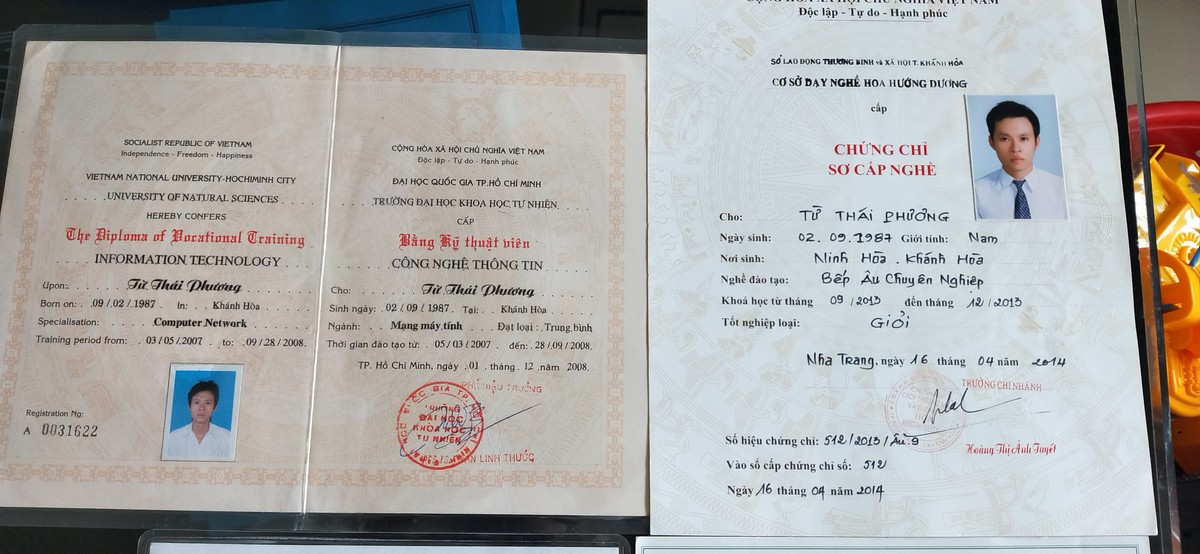 SOCIALIST REPUBLIC OF VIETNAM
Independence - Freedom - Happiness
VIETNAM NATIONAL UNIVERSITY-HOCHIMINH CITY
UNIVERSITY OF NATURAL SCIENCES
HEREBY CONFERS
The Diploma of Vocational Training
INFORMATION TECHNOLOGY
Upon: Từ Thái Phương
Born on: 09/02/1987 In: Khánh Hòa
Specialisation: Computer Network
Training period from: 03/05/2007 to: 09/28/2008.
Registration No:
A 0031622
CỘNG HÒA XÃ HỘI CHỦ NGHĨA VIỆT NAM
Độc lập - Tự do - Hạnh phúc
ĐẠI HỌC QUỐC GIA TP.HỒ CHÍ MINH
TRƯỜNG ĐẠI HỌC KHOA HỌC TỰ NHIÊN
CẤP
Bằng Kỹ thuật viên
CÔNG NGHỆ THÔNG TIN
Cho: Từ Thái Phương
Sinh ngày: 02/09/1987 Tại: Khánh Hòa
Ngành: Mạng máy tính Đạt loại: Trung bình
Thời gian đào tạo từ: 05/03/2007 đến: 28/09/2008.
TP. Hồ Chí Minh, ngày 01 tháng 12 năm 2008.
PHÓ HIỆU TRƯỞNG
ĐẠI HỌC
KHOA HỌC
TỰ NHIÊN
LINH THƯỚC
CỘNG HÒA XÃ HỘI CHỦ NGHĨA VIỆT NAM
Độc lập - Tự do - Hạnh phúc
SỞ LAO ĐỘNG THƯƠNG BINH và XÃ HỘI T. KHÁNH HÒA
CƠ SỞ DẠY NGHỀ HOA HƯỚNG DƯƠNG
cấp
CHỨNG CHỈ
SƠ CẤP NGHỀ
Cho: TỪ THÁI PHƯƠNG
Ngày sinh: 02.09.1987 Giới tính: Nam
Nơi sinh: Ninh Hòa . Khánh Hòa
Nghề đào tạo: Bếp Âu Chuyên Nghiệp
Khoá học từ tháng 09/2013 đến tháng 12/2013
Tốt nghiệp loại: Giỏi
Nha Trang, ngày 16 tháng 04 năm 2014
TRƯỞNG CHI NHÁNH
Số hiệu chứng chỉ: 512/2013/Âu.9
Hoàng Thị Ánh Tuyết
Vào sổ cấp chứng chỉ số: 512
Ngày 16 tháng 04 năm 2014